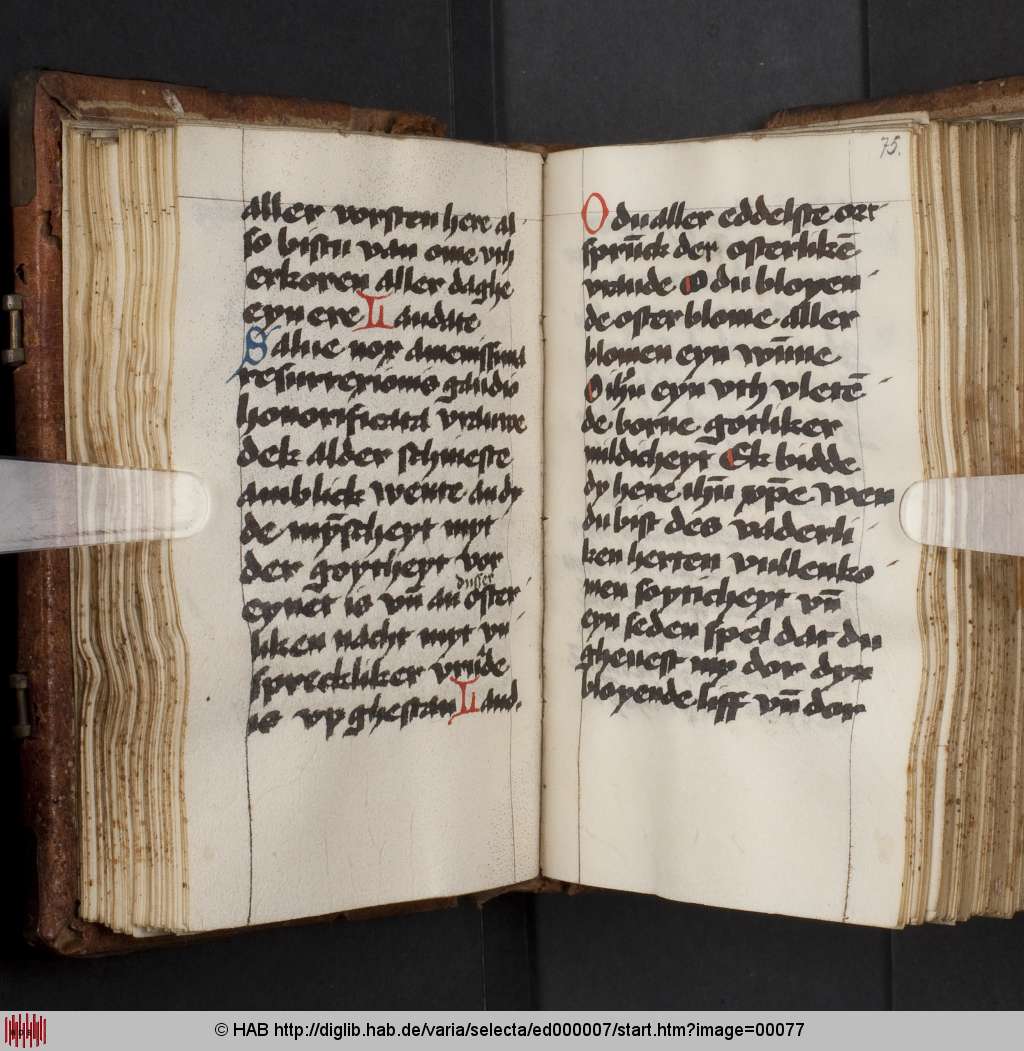 aller vorsten here al
so bistu van ome vth
erkoren aller daghe
eyn ere Laudate
Salue nox amenissima
resurrexionis gaudio
honorificata vrauwe
dek alder schineste
anblick wente an dy
de mȳscheyt myt
der goytheyt vor
eynet is vn̄ an dusser oster
liken nacht myt vn
sprekliker vraude
is vp ghestan Laud.
75.
O du aller eddelste ort
sprūck der osterlikē
vraude O du bloyen
de oster blome aller
blomen eyn wūne
O ihū eyn vth vletē
de borne gotliker
mildicheyt Ek bidde
dy here ihū xp̄e wen
du bist des vaderli
ken herten vullenko
men soyticheyt vn̄
eyn seden spel dat du
gheuest my dor dyn
bloyende liff vn̄ dor
© HAB http://diglib.hab.de/varia/selecta/ed000007/start.htm?image=00077